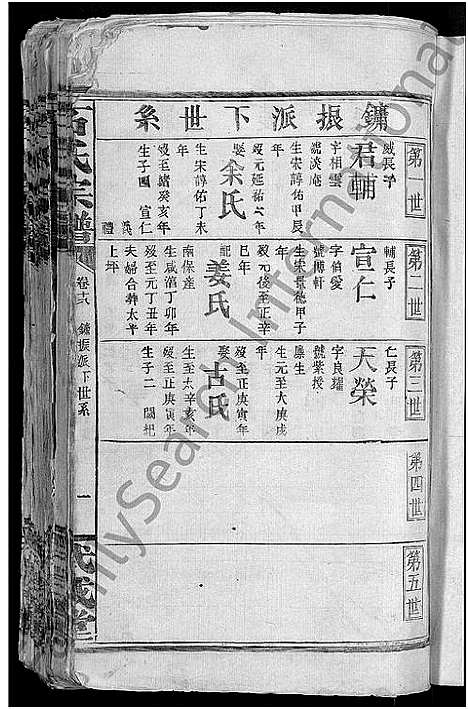 鏞振派下世系
第一世
君輔
字相雲
生宋淳佑甲辰
年
娶余氏
生宋淳佑丁未
年
生子 宣仁
第二世
輔長子
宣仁
字伯愛
號博軒
生宋景德甲子
年
歿元後至正辛
巳年
配姜氏
南保產
生咸淳丁卯年
歿至元丁丑年
夫婦合葬太平
上坪
第三世
仁長子
天榮
字良耀
號紫授
廩生
生元至大庚戌
年
歿至正庚寅年
娶古氏
生至大辛亥年
歿至正庚寅年
生子二
第四世
第五世
宗譜
卷十六 鏞振派下世系
一
FamilySearch International